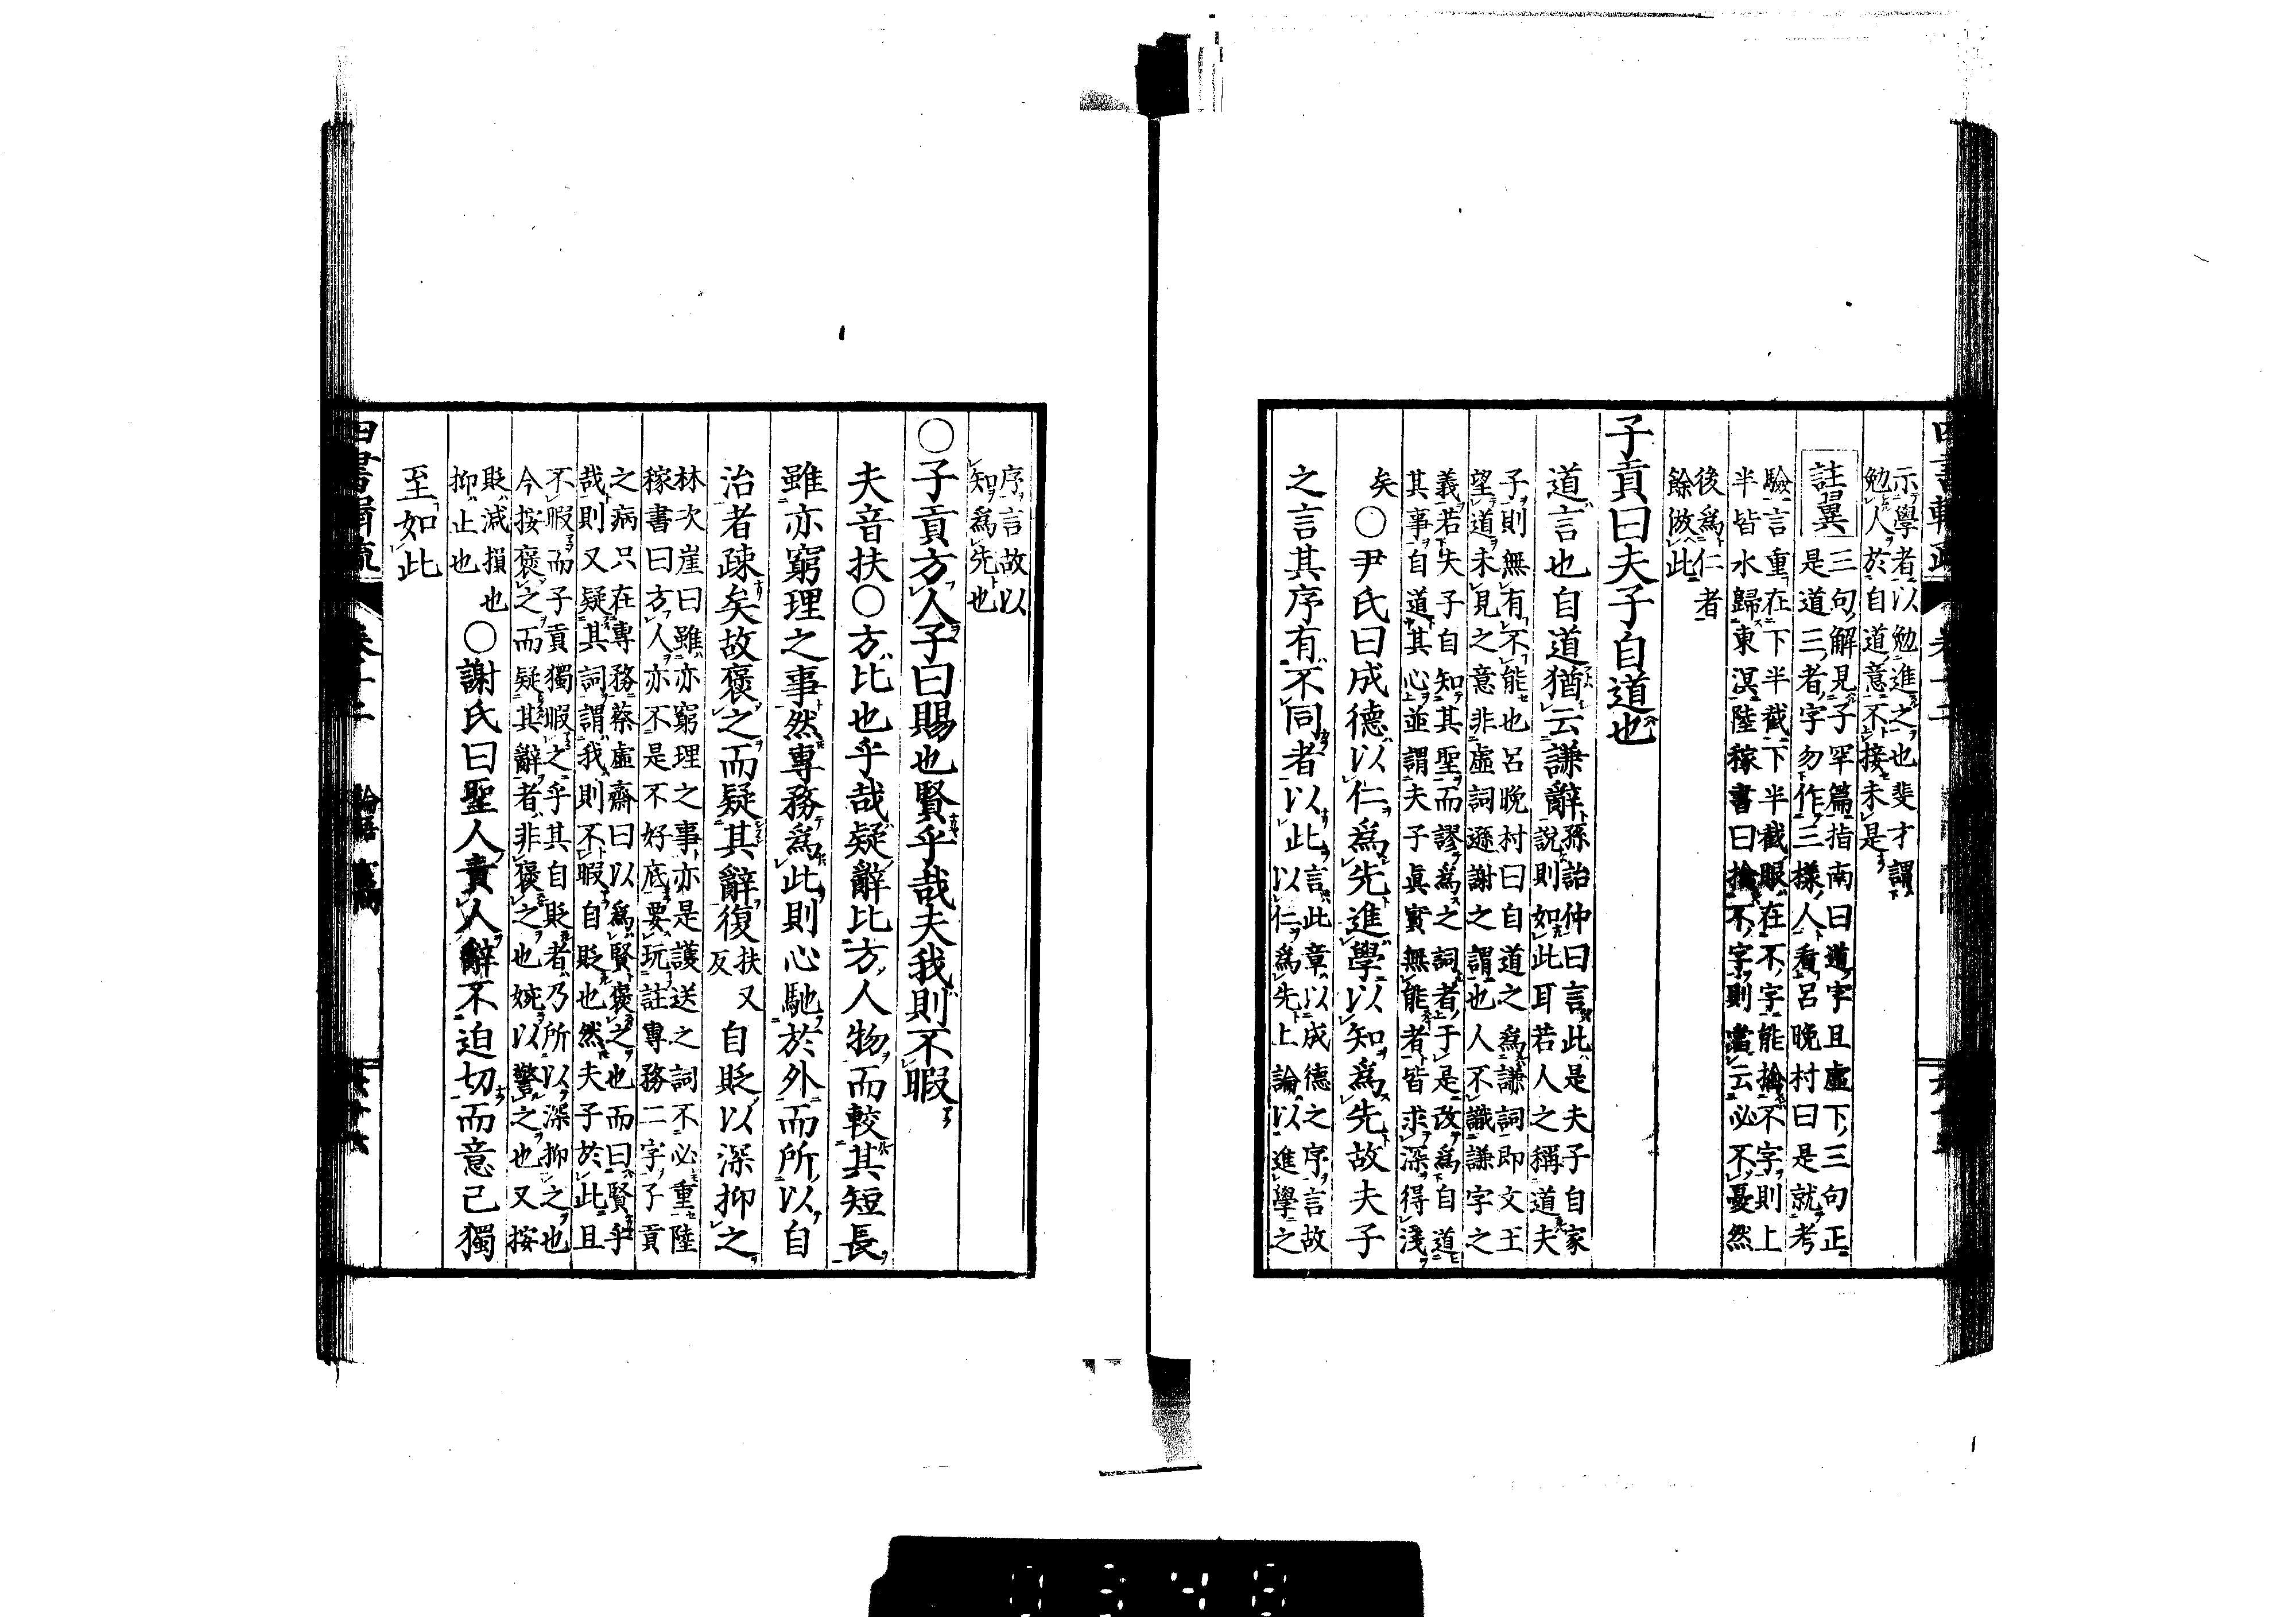 示學者以勉進之也斐才謂
勉人於自道意不接未是
註翼
三句解見子罕篇指南曰道字且虛下三句正
是道三者字勿作三樣人看呂晚村曰是就考
驗言重在下半截下半截眼在不字能擒不字則上
半皆水歸東溟陸稼書曰擒不字則當云必不憂然
後爲仁者
餘倣此
子貢曰夫子自道也
道言也自道猶云謙辭
孫詒仲曰言此是夫子自家
說則如此耳若人之稱道夫
子則無有不能也呂晚村曰自道之爲謙詞即文王
望道未見之意非虛詞遜謝之謂也人不識謙字之
義若失子自知其聖而謬爲之詞者于是改爲自道
其事自道其心並謂夫子眞實無能者皆求深得淺
矣
○尹氏曰成德以仁爲先進學以知爲先故夫子
之言其序有不同者以此
言此章以成德之序言故
以仁爲先上論以進學之
序言故以
知爲先也
○子貢方人子曰賜也賢乎哉夫我則不暇
夫音扶○方比也乎哉疑辭比方人物而較其短長
雖亦窮理之事然專務爲此則心馳於外而所以自
治者疎矣故褒之而疑其辭復
扶又
反
自貶以深抑之
林次崖曰雖亦窮理之事亦是護送之詞不必重陸
稼書曰方人亦不是不好底要玩註專務二字子貢
之病只在專務蔡虛齋曰以爲賢褒之也而曰賢乎
哉則又疑其詞謂我則不暇自貶也然夫子於此且
不暇而子貢獨暇之乎其自貶者乃所以深抑之也
今按褒之而疑其辭者非褒之也婉以警之也又按
貶減損也
抑止也
○謝氏曰聖人責人辭不迫切而意已獨
至如此
卷十二
論語